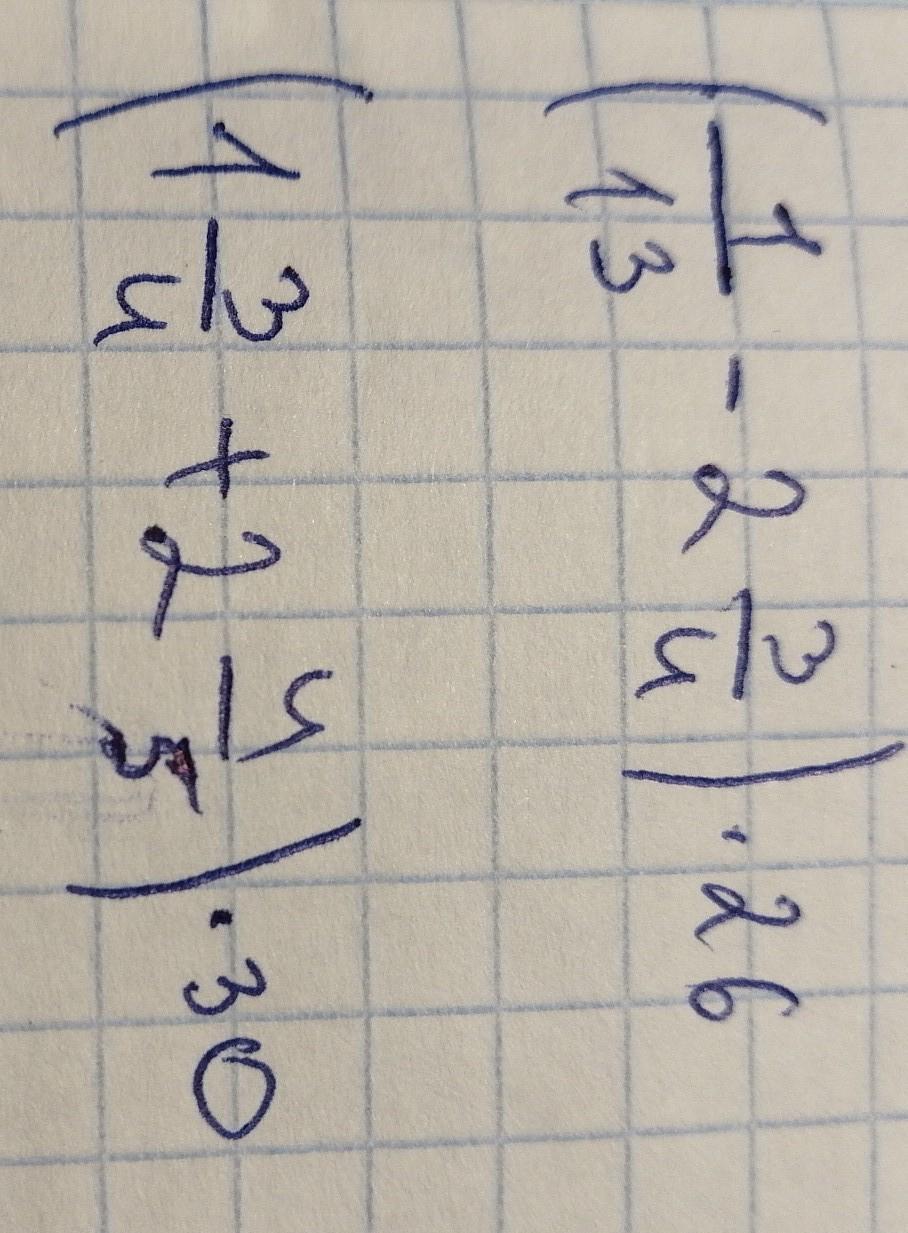 (1/13 - 2 3/4) · 26
(1 3/4 + 2 4/5) · 30